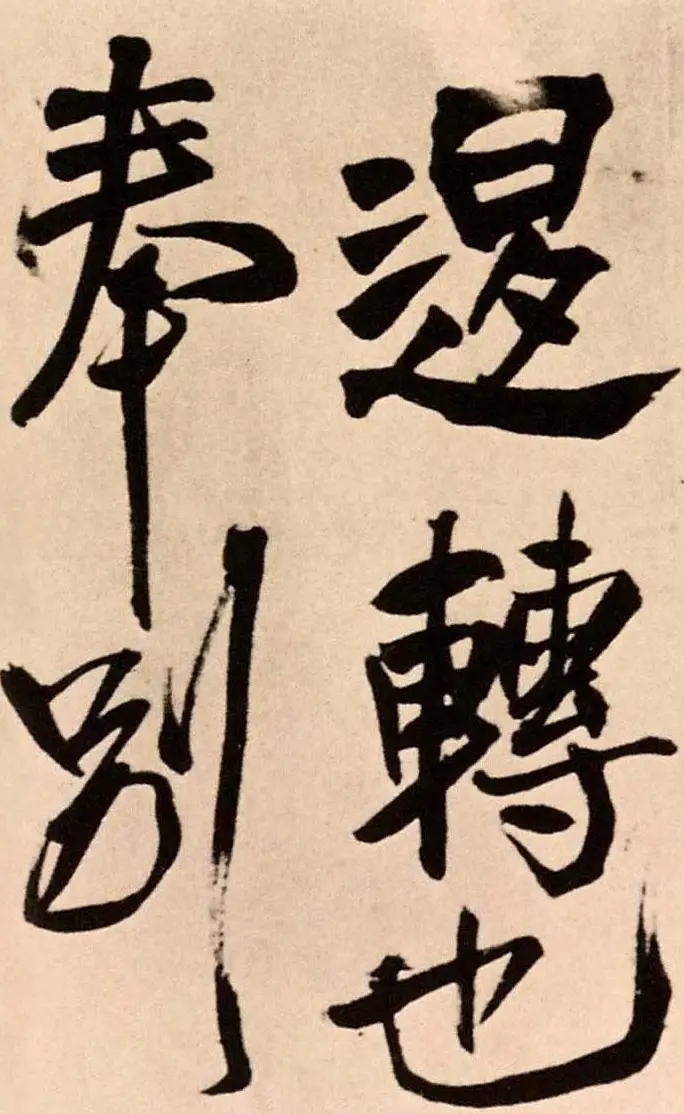 退轉也
奉別